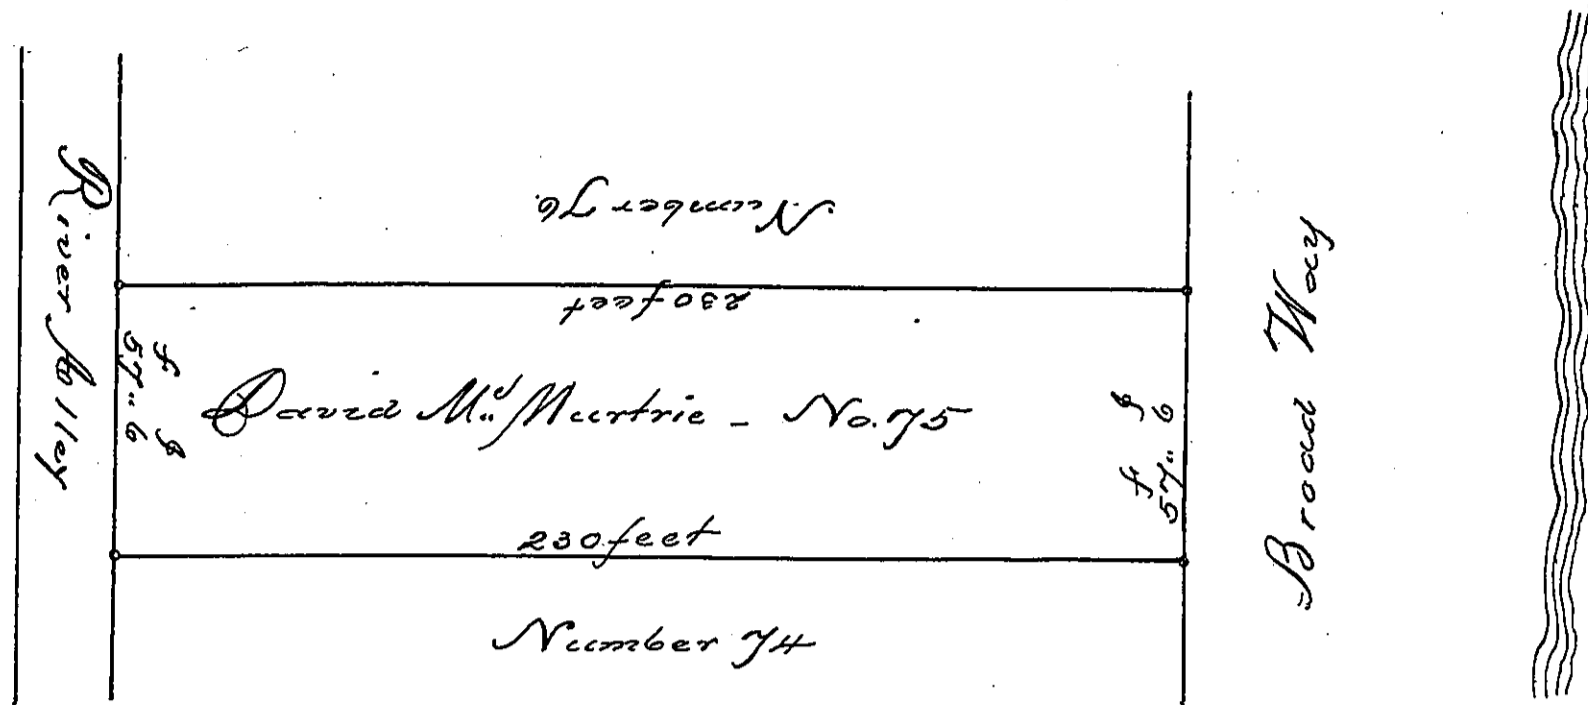 River Alley
Number 76.
230 feet
f I
57" 6
David Mc. Murtrie - No. 75
f I
57" 6
230 feet
Number 74
Broad Way